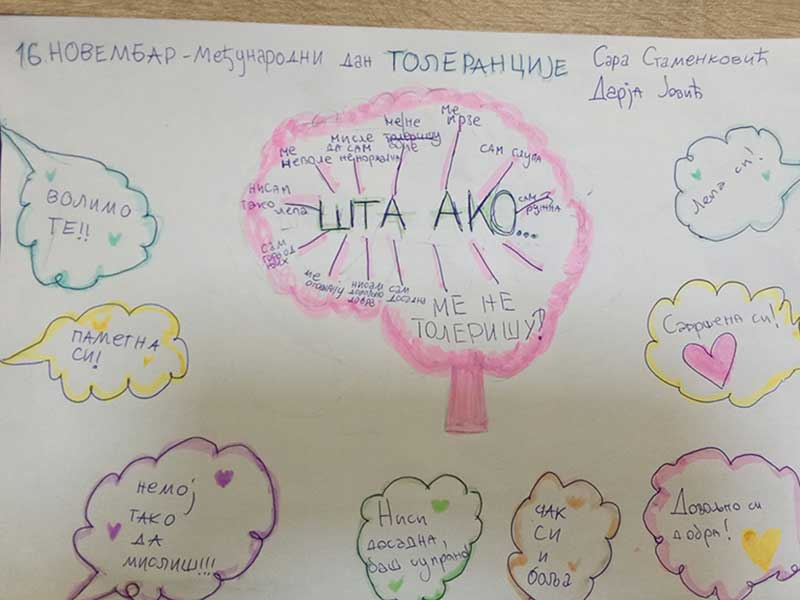 16. НОВЕМБАР - Међународни дан ТОЛЕРАНЦИЈЕ
Сара Стаменковић
Дарја Јовић
ВОЛИМО
ТЕ!!
ПАМЕТНА
СИ!
НЕМОЈ
ТАКО
ДА
МИСЛИШ!!!
нисам
тако лепа
ме
неполе
мисле
да сам
ненормална
ме не
толеришу
ме
мрзе
сам глупа
сам
ружна
ШТА АКО...
сам
гора од
њих
ме
нисам
довољно
добра
сам
досадна
МЕ НЕ
ТОЛЕРИШУ?
Лепа си!
Савршена си!
Ниси
досадна,
баш супротно
ЧАК
СИ
И
боља
Довољно си
добра!